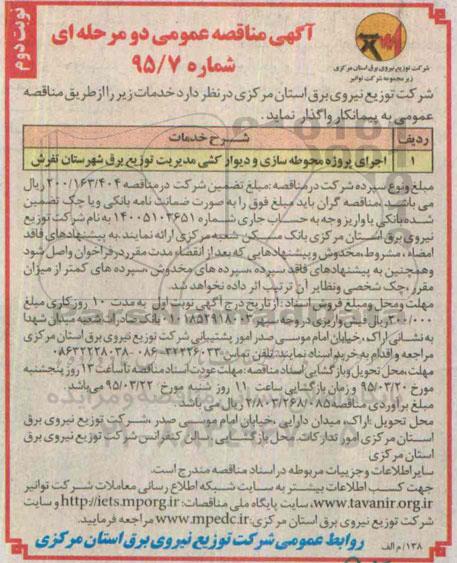 نوبت دوم
آگهی مناقصه عمومی دو مرحله ای
شماره ۹۵/۷
شرکت توزیع نیروی برق استان مرکزی
زیر مجموعه شرکت توانیر
شرکت توزیع نیروی برق استان مرکزی در نظر دارد خدمات زیر را از طریق مناقصه
عمومی به پیمانکار واگذار نماید.
ردیف شرح خدمات
۱ اجرای پروژه محوطه سازی و دیوار کشی مدیریت توزیع برق شهرستان تفرش
مبلغ و نوع سپرده شرکت در مناقصه: مبلغ تضمین شرکت در مناقصه ۲۰۰/۱۶۳/۴۰۴ ریال
می باشد. مناقصه گران باید مبلغ فوق را به صورت ضمانت نامه بانکی و یا چک تضمین
شده بانکی یا واریز وجه به حساب جاری شماره ۱۴۰۰۵۱۰۳۶۵۱ به نام شرکت توزیع
نیروی برق استان مرکزی بانک مسکن شعبه مرکزی ارائه نمایند. به پیشنهادهای فاقد
امضاء، مشروط، مخدوش و پیشنهادهایی که بعد از انقضاء مدت مقرر در فراخوان واصل شود
و همچنین به پیشنهادهای فاقد سپرده، سپرده های مخدوش، سپرده های کمتر از میزان
مقرر، چک شخصی و نظایر آن ترتیب اثر داده نخواهد شد.
مهلت و محل و مبلغ فروش اسناد: از تاریخ درج آگهی نوبت اول به مدت ۱۰ روز کاری مبلغ
۳۰۰/۰۰۰ ریال فیش واریزی در وجه سپهر ۰۱۰۱۸۵۲۹۱۸۰۰۳ بانک صادرات شعبه میدان شهدا
به نشانی اراک، خیابان امام موسی صدر امور پشتیبانی شرکت توزیع نیروی برق استان مرکزی
مراجعه و اقدام به خرید اسناد نمایند. تلفن تماس ۳۲۲۲۶۰۳۳-۰۸۶ ۰۸۶۳۲۲۲۸۰۳۸
مهلت، محل تحویل و بازگشایی اسناد مناقصه: مهلت عودت اسناد مناقصه تا ساعت ۱۳ روز پنجشنبه
مورخ ۹۵/۰۳/۲۰ و زمان بازگشایی ساعت ۱۱ روز شنبه مورخ ۹۵/۰۳/۲۲ می باشد.
مبلغ برآوردی مناقصه ۲/۸۰۳/۲۶۸/۰۸۵ ریال می باشد.
محل تحویل: اراک، میدان دارایی، خیابان امام موسی صدر، شرکت توزیع نیروی برق
استان مرکزی امور تدارکات. محل بازگشایی: سالن کنفرانس شرکت توزیع نیروی برق
استان مرکزی
سایر اطلاعات و جزییات مربوطه در اسناد مناقصه مندرج است.
جهت کسب اطلاعات بیشتر به سایت شبکه اطلاع رسانی معاملات شرکت توانیر
www.tavanir.org.ir، سایت پایگاه ملی مناقصات: http://iets.mporg.ir و سایت
شرکت توزیع نیروی برق استان مرکزی: www.mpedc.ir مراجعه فرمایید.
۱۳۸/م الف
روابط عمومی شرکت توزیع نیروی برق استان مرکزی